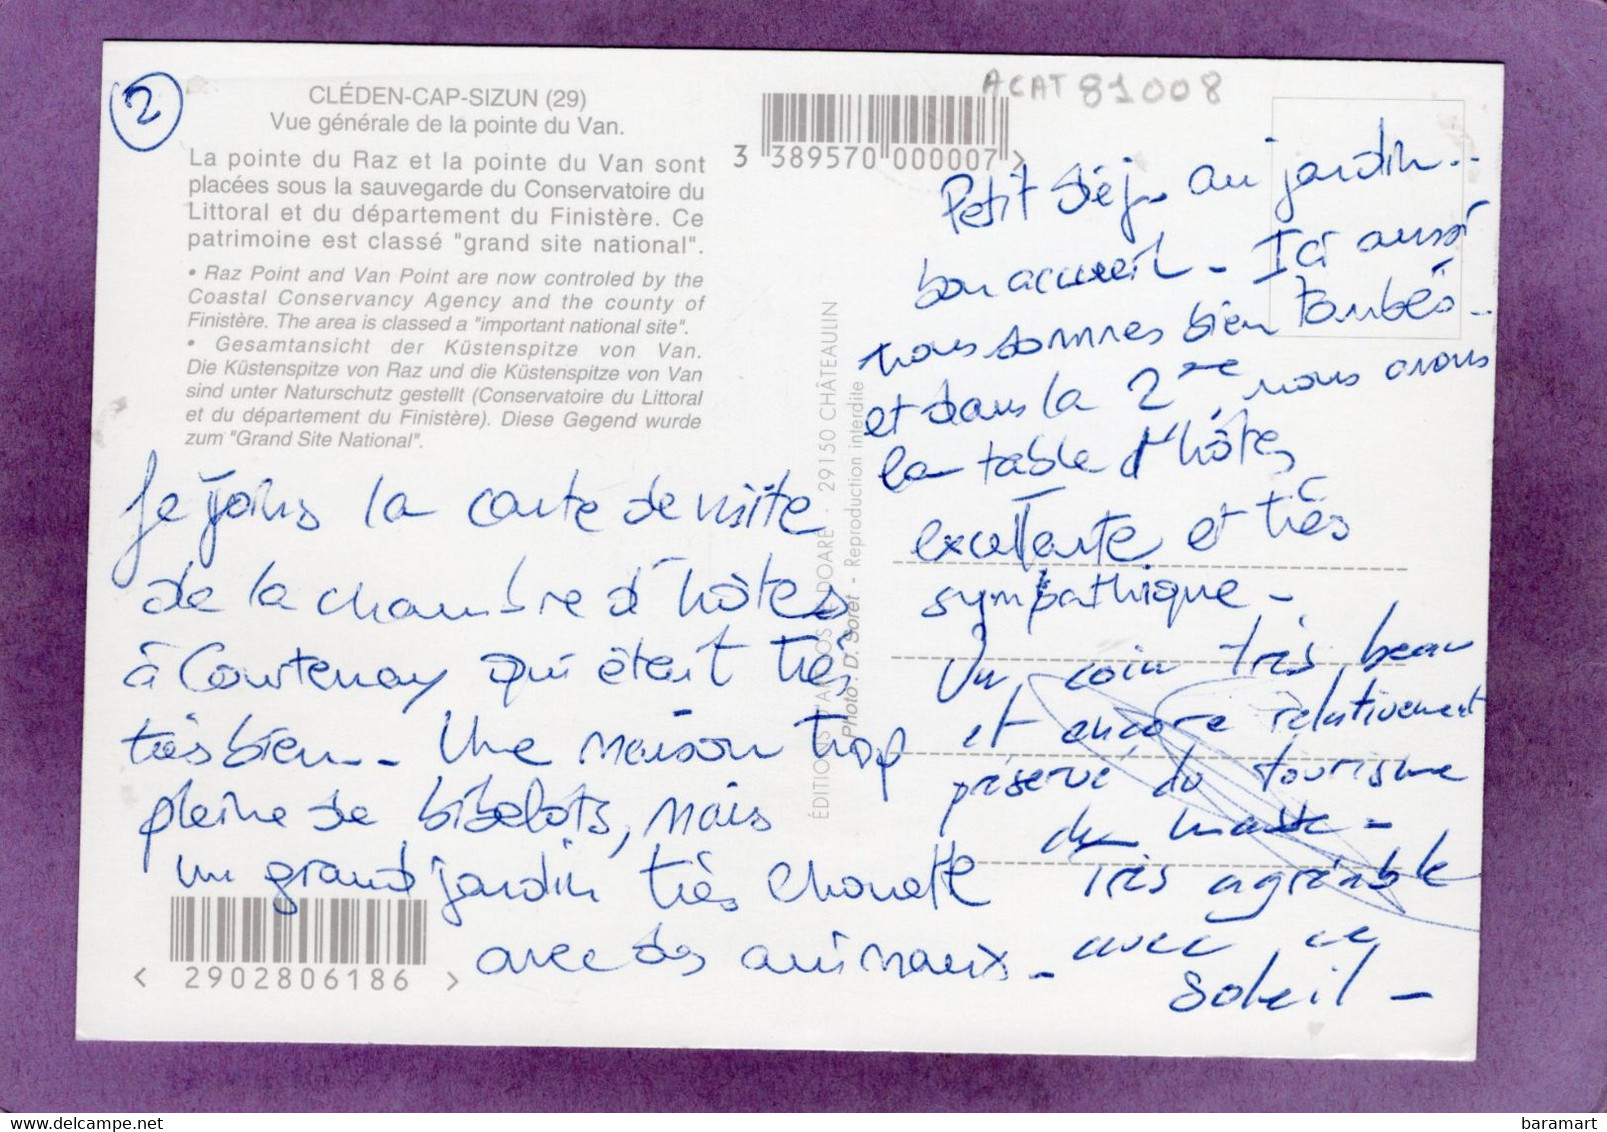 2
CLÉDEN-CAP-SIZUN (29)
Vue générale de la pointe du Van.
La pointe du Raz et la pointe du Van sont
placées sous la sauvegarde du Conservatoire du
Littoral et du département du Finistère. Ce
patrimoine est classé "grand site national".
• Raz Point and Van Point are now controled by the
Coastal Conservancy Agency and the county of
Finistère. The area is classed a "important national site".
• Gesamtansicht der Küstenspitze von Van.
Die Küstenspitze von Raz und die Küstenspitze von Van
sind unter Naturschutz gestellt (Conservatoire du Littoral
et du département du Finistère). Diese Gegend wurde
zum "Grand Site National".
Je joins la carte de visite
de la chambre d'hôtes
à Courtenay qui était très
très bien - Une maison trop
pleine de bibelots, mais
un grand jardin très chouette
avec des animaux -
< 2902806186 >
ACAT 81008
3 389570 000007 >
ÉDITIONS D'ART JOS DOARÉ - 29150 CHÂTEAULIN
Photo : D. Soret - Reproduction interdite
Petit déj - au jardin ..
bon accueil - Ici aussi
nous sommes bien tombés ..
et dans la 2me nous avons
la table d'hôtes
excellente et très
sympathique -
Un coin très beau
et encore relativement
préservé du tourisme
de masse -
Très agréable
avec ce
soleil -
baramart
delcampe.net